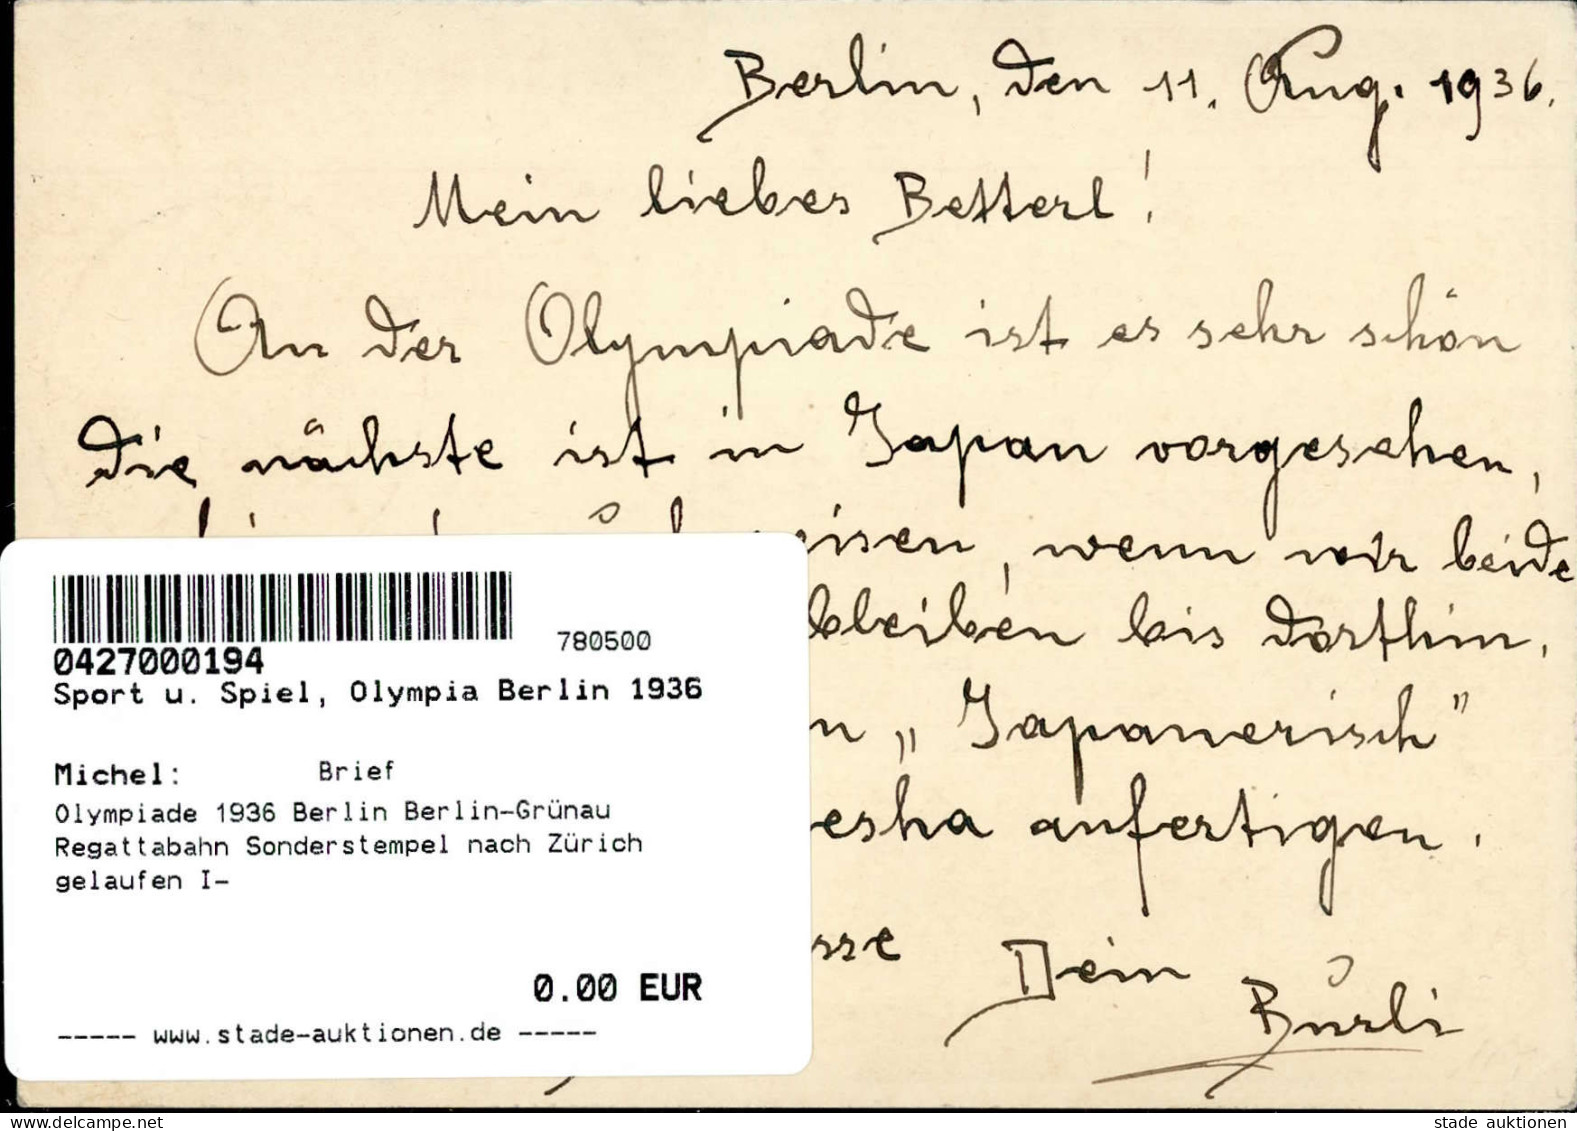 Berlin, den 11. Aug. 1936.
Mein liebes Betterl!
An der Olympiade ist es sehr schön
die nächste ist in Japan vorgesehen,
eisen, wenn wir beide
bleiben bis dorthin.
n „Japanerisch"
esha anfertigen.
sse Dein
Burli
780500
0427000194
Sport u. Spiel, Olympia Berlin 1936
Michel: Brief
Olympiade 1936 Berlin Berlin-Grünau
Regattabahn Sonderstempel nach Zürich
gelaufen I-
0.00 EUR
----- www.stade-auktionen.de -----
www.delcampe.net
stade auktionen